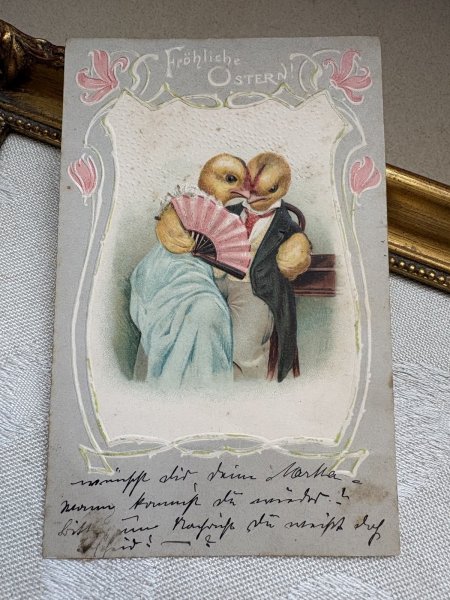 Fröhliche
Ostern!
wünscht dir, deine Martha –
Wann kommst du wieder?
bitte um Nachricht du weißt doch
Bescheid! — ?